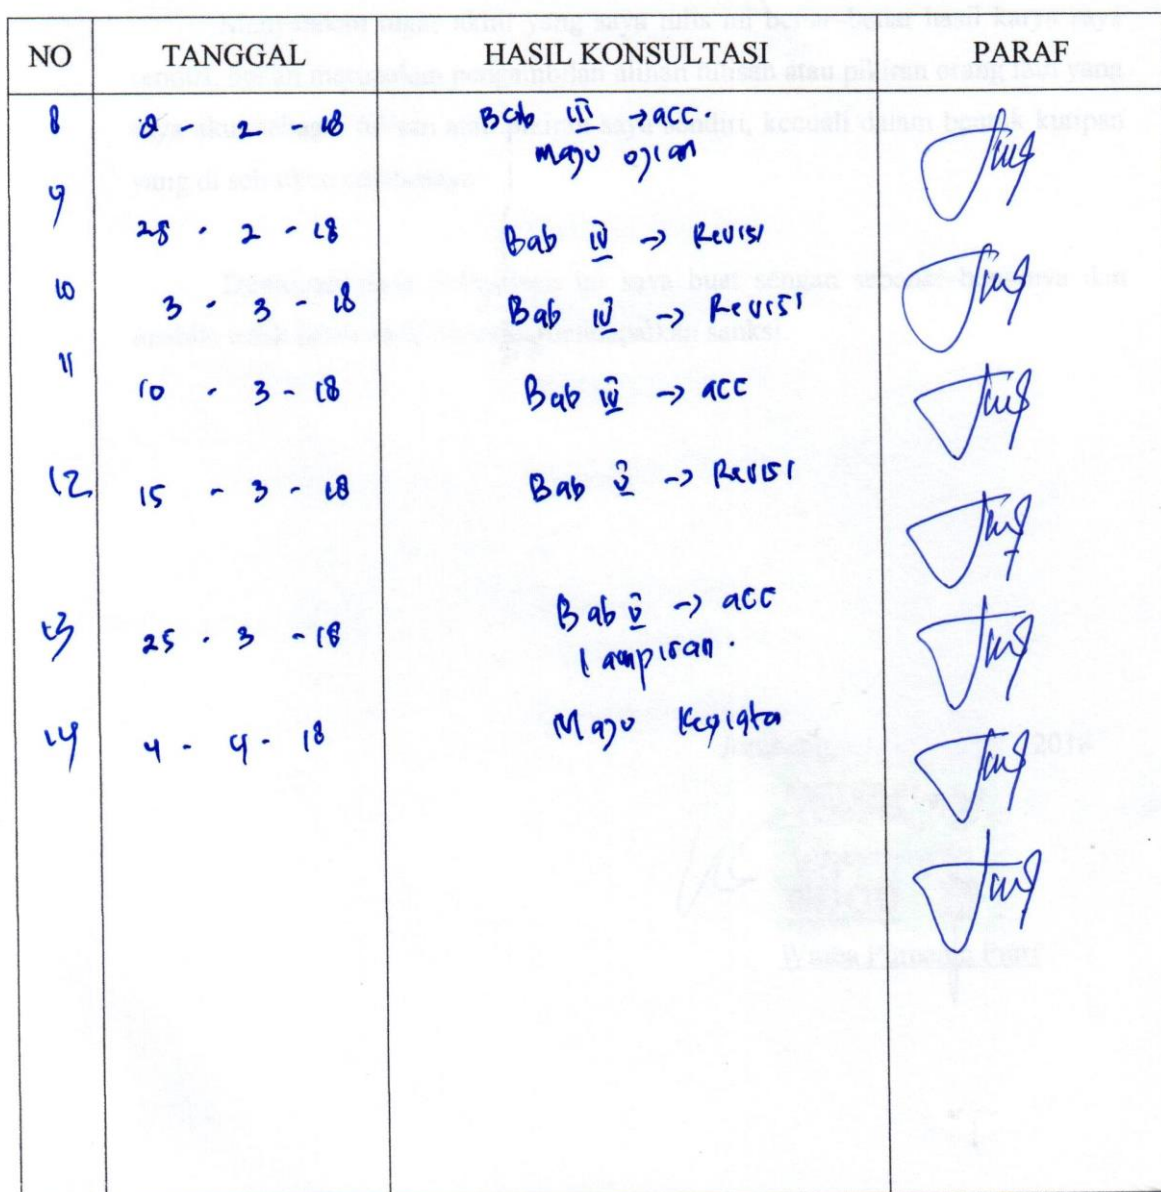 NO TANGGAL HASIL KONSULTASI PARAF
8 8 - 2 - 18 Bab III → acc.
Maju ujian
9 28 - 2 - 18 Bab IV → Revisi
10 3 - 3 - 18 Bab IV → Revisi
11 10 - 3 - 18 Bab IV → acc
12 15 - 3 - 18 Bab V → Revisi
13 25 - 3 - 18 Bab V → acc
Lampiran.
14 4 - 4 - 18 Maju